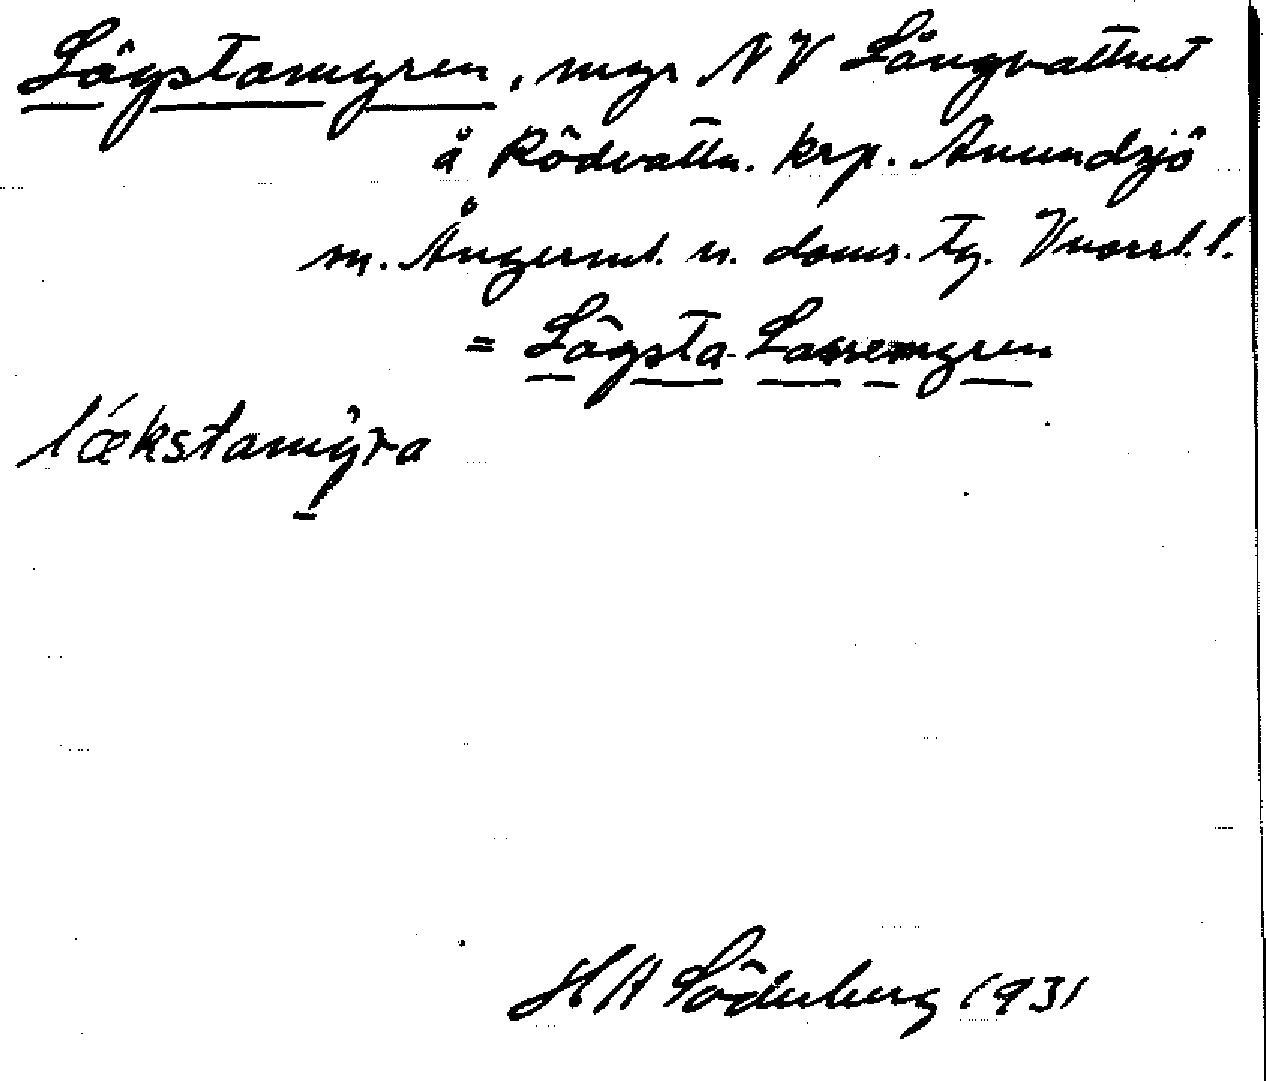 Lägstamyren, myr NV Långvattnet
å Rödvattn. krp. Anundsjö
sn. Ångerml. n. doms. tg. Vnorrl. l.
= Lägsta-Lassemyren
lækstamyra
H A Söderberg 1931